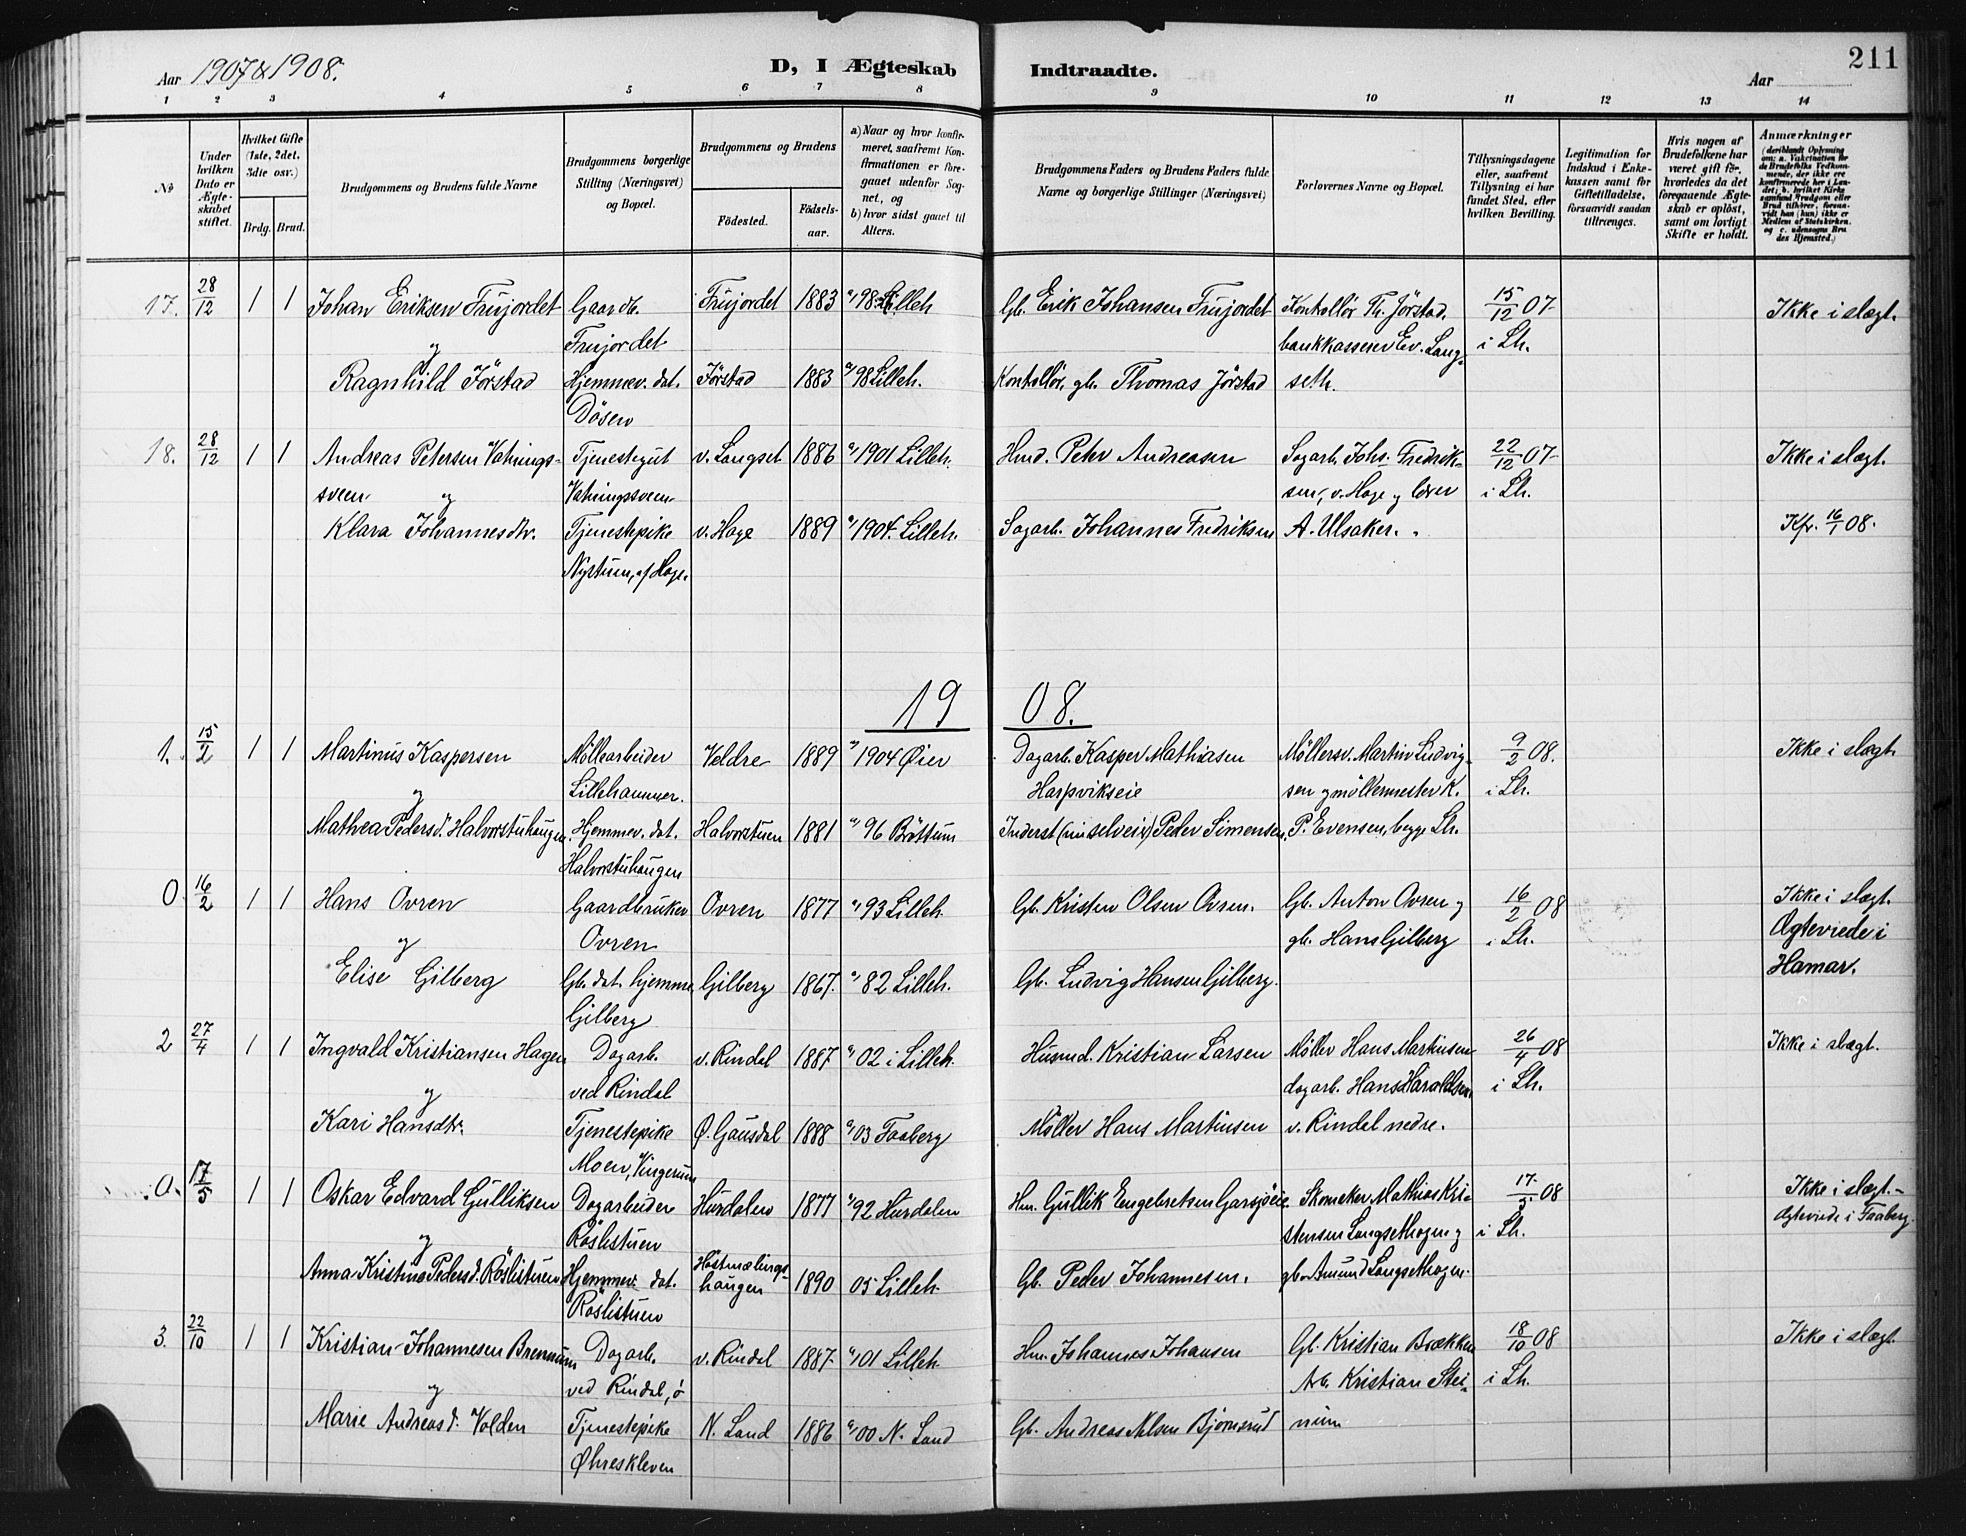 211
Aar 1907 & 1908.
D, I Ægteskab Indtraadte.
Aar
1 2 3 4 5 6 7 8 9 10 11 12 13 14
№
Under hvilken Dato er Ægteskabet stiftet.
Hvilket Gifte (1ste, 2det, 3die osv.)
Brdg. Brud.
Brudgommens og Brudens fulde Navne
Brudgommens borgerlige Stilling (Næringsvei) og Bopæl.
Brudgommens og Brudens
Fødested. Fødselsaar.
a) Naar og hvor konfirmeret, saafremt Konfirmationen er foregaaet udenfor Sognet, og
b) hvor sidst gaaet til Alters.
Brudgommens Faders og Brudens Faders fulde Navne og borgerlige Stillinger (Næringsvei)
Forlovernes Navne og Bopæl.
Tillysningsdagene eller, saafremt Tillysning ei har fundet Sted, efter hvilken Bevilling.
Legitimation for Indskud i Enkekassen samt for Giftetilladelse, forsaavidt saadan tiltrænges.
Hvis nogen af Brudefolkene har været gift før, hvorledes da det foregaaende Ægteskab er opløst, samt om lovligt Skifte er holdt.
Anmærkninger
17. 28/12 1 1 Johan Eriksen Frujordet Gaardb. Frujordet 1883 98 Lilleh Gb. Erik Johansen Frujordet Kontollør Th. Jörstad, 15/12 07- Ikke i slægt.
og Frujordet bankkasserer Ev. Lang- i Lh.
Ragnhild Jörstad Hjemmev. dat. Jörstad 1883 98 Lilleh. Kontollör, gb. Thomas Jörstad seth.
Dösen
18. 28/12 1 1 Andreas Petersen Vatnings- Tjenestegut v. Langset 1886 1901 Lilleh. Hmd. Peter Andreasen Sagarb. Johs. Fredrik- 22/12 07- Ikke i slægt.
sveen og Vatningsveen sen, v. Hage og lærer i Lh.
Klara Johannesdtr. Tjenestepike v. Hage 1889 1904. Lilleh. Sagarb. Johannes Fredriksen A. Ulsaker. Kfr. 16/1 08.
Nystuen, af Hage.
1908.
1. 15/2 1 1 Martinus Kaspersen Möllearbeider Veldre 1889 1904 Øier Dagarb. Kasper Mathiasen Møllersv. Martin Ludvig- 9/2 08. Ikke i slægt
og Lillehammer. Harpvikseie sen og möllemester K. i Lh.
Mathea Pedersd. Halvorstuhaugen Hjemmev. dat. Halvorstuen 1881 96 Bröttum Inderst Peder Simensen. P. Evensen, begge Lh.
Halvorstuhaugen
0. 16/2 1 1 Hans Ovren Gaardbruker Ovren 1877 93 Lilleh Gb. Kristen Olsen Ovren. Gb. Anton Ovren og 16/2 08 Ikke i slægt.
og Ovren gb. Hans Gilberg i Lh. Ægteviede i
Elise Gilberg Gb. dat. hjemme, Gilberg 1867. 82 Lilleh. Gb. Ludvig Hansen Gilberg. Hamar.
Gilberg
2 27/4 1 1 Ingvald Kristiansen Hagen Dagarb. v. Rindal 1887 02 i Lilleh. Husmd. Kristian Larsen Møller Hans Martinsen 26/4 08 Ikke i slægt.
og ved Rindal dagarb. Hans Haraldsen i Lh.
Kari Hansdtr. Tjenestepike Ø. Gausdal 1888 03 Faaberg Møller Hans Martinsen v. Rindal nedre.
Moen, Vingerum
0. 17/5 1 1 Oskar Edvard Gulliksen Dagarbeider Hurdalen 1877 92 Hurdalen Hm. Gullik Engebretsen Garsjöeie. Skomeker Mathias Kri- 17/5 08 Ikke i slægt.-
og Röslistuen stensen Langsethagen og i Lh. Ægteviede i Faaberg.
Anna Kristine Pedersd. Röslistuen Hjemmev. dat. Höstmælingshaugen 1890 05 Lilleh. Gb. Peder Johannesen. gb. Amund Langsethagen.
Röslistuen
3. 22/10 1 1 Kristian Johannesen Brennum Dagarb. v. Rindal 1887. 01 Lilleh. Hm. Johannes Johansen Gb. Kristian Brækken 18/10 08 Ikke i slægt.
og ved Rindal, ö Arb. Kristian Stei- i Lh.
Marie Andreasd. Volden Tjenestepike N. Land 1886 00 N. Land Gb. Andreas Nilsen Björnerud num
Øhreskleven